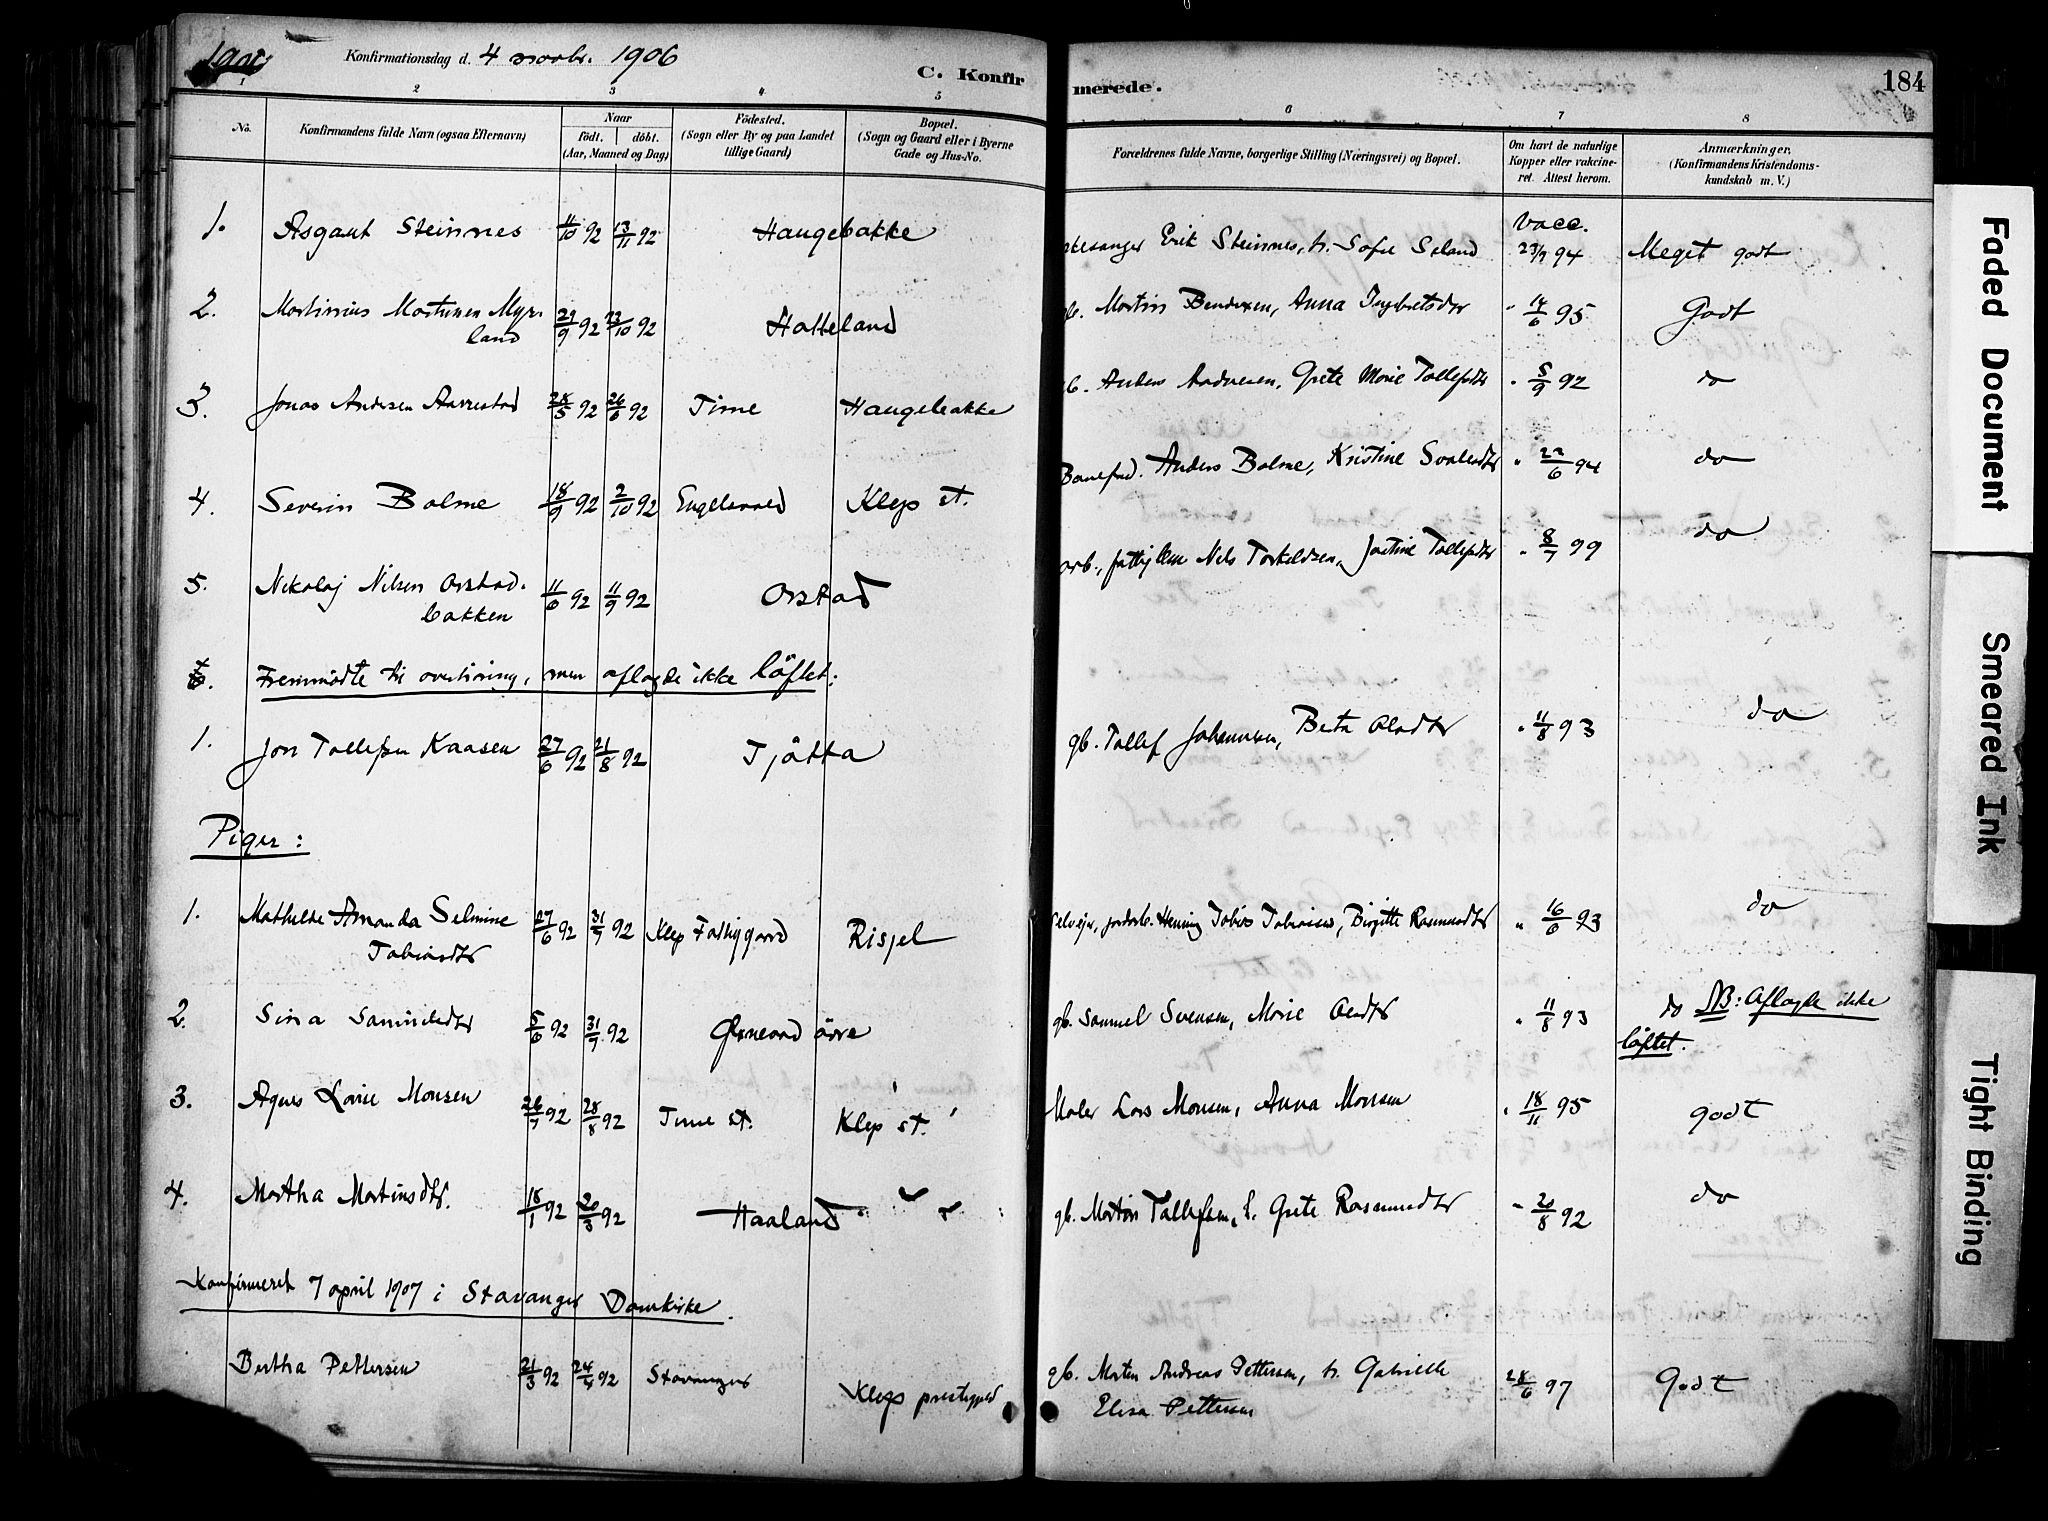 1906 Konfirmationsdag d. 4 novbr. 1906 C. Konfirmerede. 184
1 2 3 4 5 6 7 8
No.
Konfirmandens fulde Navn (ogsaa Efternavn)
Naar
födt. döbt.
(Aar, Maaned og Dag)
Födested.
(Sogn eller By og paa Landet
tillige Gaard)
Bopæl.
(Sogn og Gaard eller i Byerne
Gade og Hus-No.
Forældrenes fulde Navne, borgerlige Stilling (Næringsvei) og Bopæl.
Om havt de naturlige
Kopper eller vakcine-
ret. Attest herom.
Anmærkninger,
(Konfirmandens Kristendoms-
kundskab m. V.)
1. Asgaut Steinnes 11/10 92 13/11 92 Haugebakke Erik Steinnes, h. Sofie Vacc. 23/9 94 Meget godt
2. Martinius Myr-
land 29/9 92 23/10 92 Hatteland gb. Anna 14/6 95 Godt
3. Jonas Andersen Aarrestad 28/5 92 26/6 92 Time Haugebakke gb. Grete Marie Tollefsdtr " 5/9 92 do
4. Severin Bolme 18/9 92 2/10 92 Engelsvold Klep st. Anders Bolme, Kristine " 22/6 94 do
5. Nikolaj Nilsen Orstad-
bakken 11/6 92 11/9 92 Orstad Nils Torkeldsen, Jortine Tollefsdtr " 8/7 99 do
Fremmødte til overhøring, men aflagde ikke löftet:
1. Jon Tollefsen Kaasen 27/6 92 21/8 92 Tjötta gb. Tollef Johannesen, Berta Olsdtr " 11/8 93 do
Piger:
1. Mathilde Amanda Selmine
Tobiasdtr 27/6 92 31/7 92 Klep Fattiggaard Risjel Henning Tobias Tobiasen, Birgitte Rasmusdtr " 16/6 93 do
2. Sina Samueldtr 5/6 92 31/7 92 gb. Samuel Svensen, Marie " 11/8 93 do NB: Aflagde ikke
löftet.
3. Agnes Lovise Monsen 26/7 92 28/8 92 Time st. Klep st. Maler Lars Monsen, Anna Monsen 18/11 95 godt
4. Martha Martinsdtr. 18/1 92 20/3 92 Haaland gb. Grete Rasmusdtr " 20/8 92 do
Konfirmeret 7 april 1907 i Stavanger Domkirke.
Bertha Pettersen 21/3 92 24/4 92 Stavanger Klep gb. Morten Andreas Pettersen, h. Gabrielle
Elisa Pettersen 28/6 97 Godt
Faded Document
Smeared Ink
Tight Binding